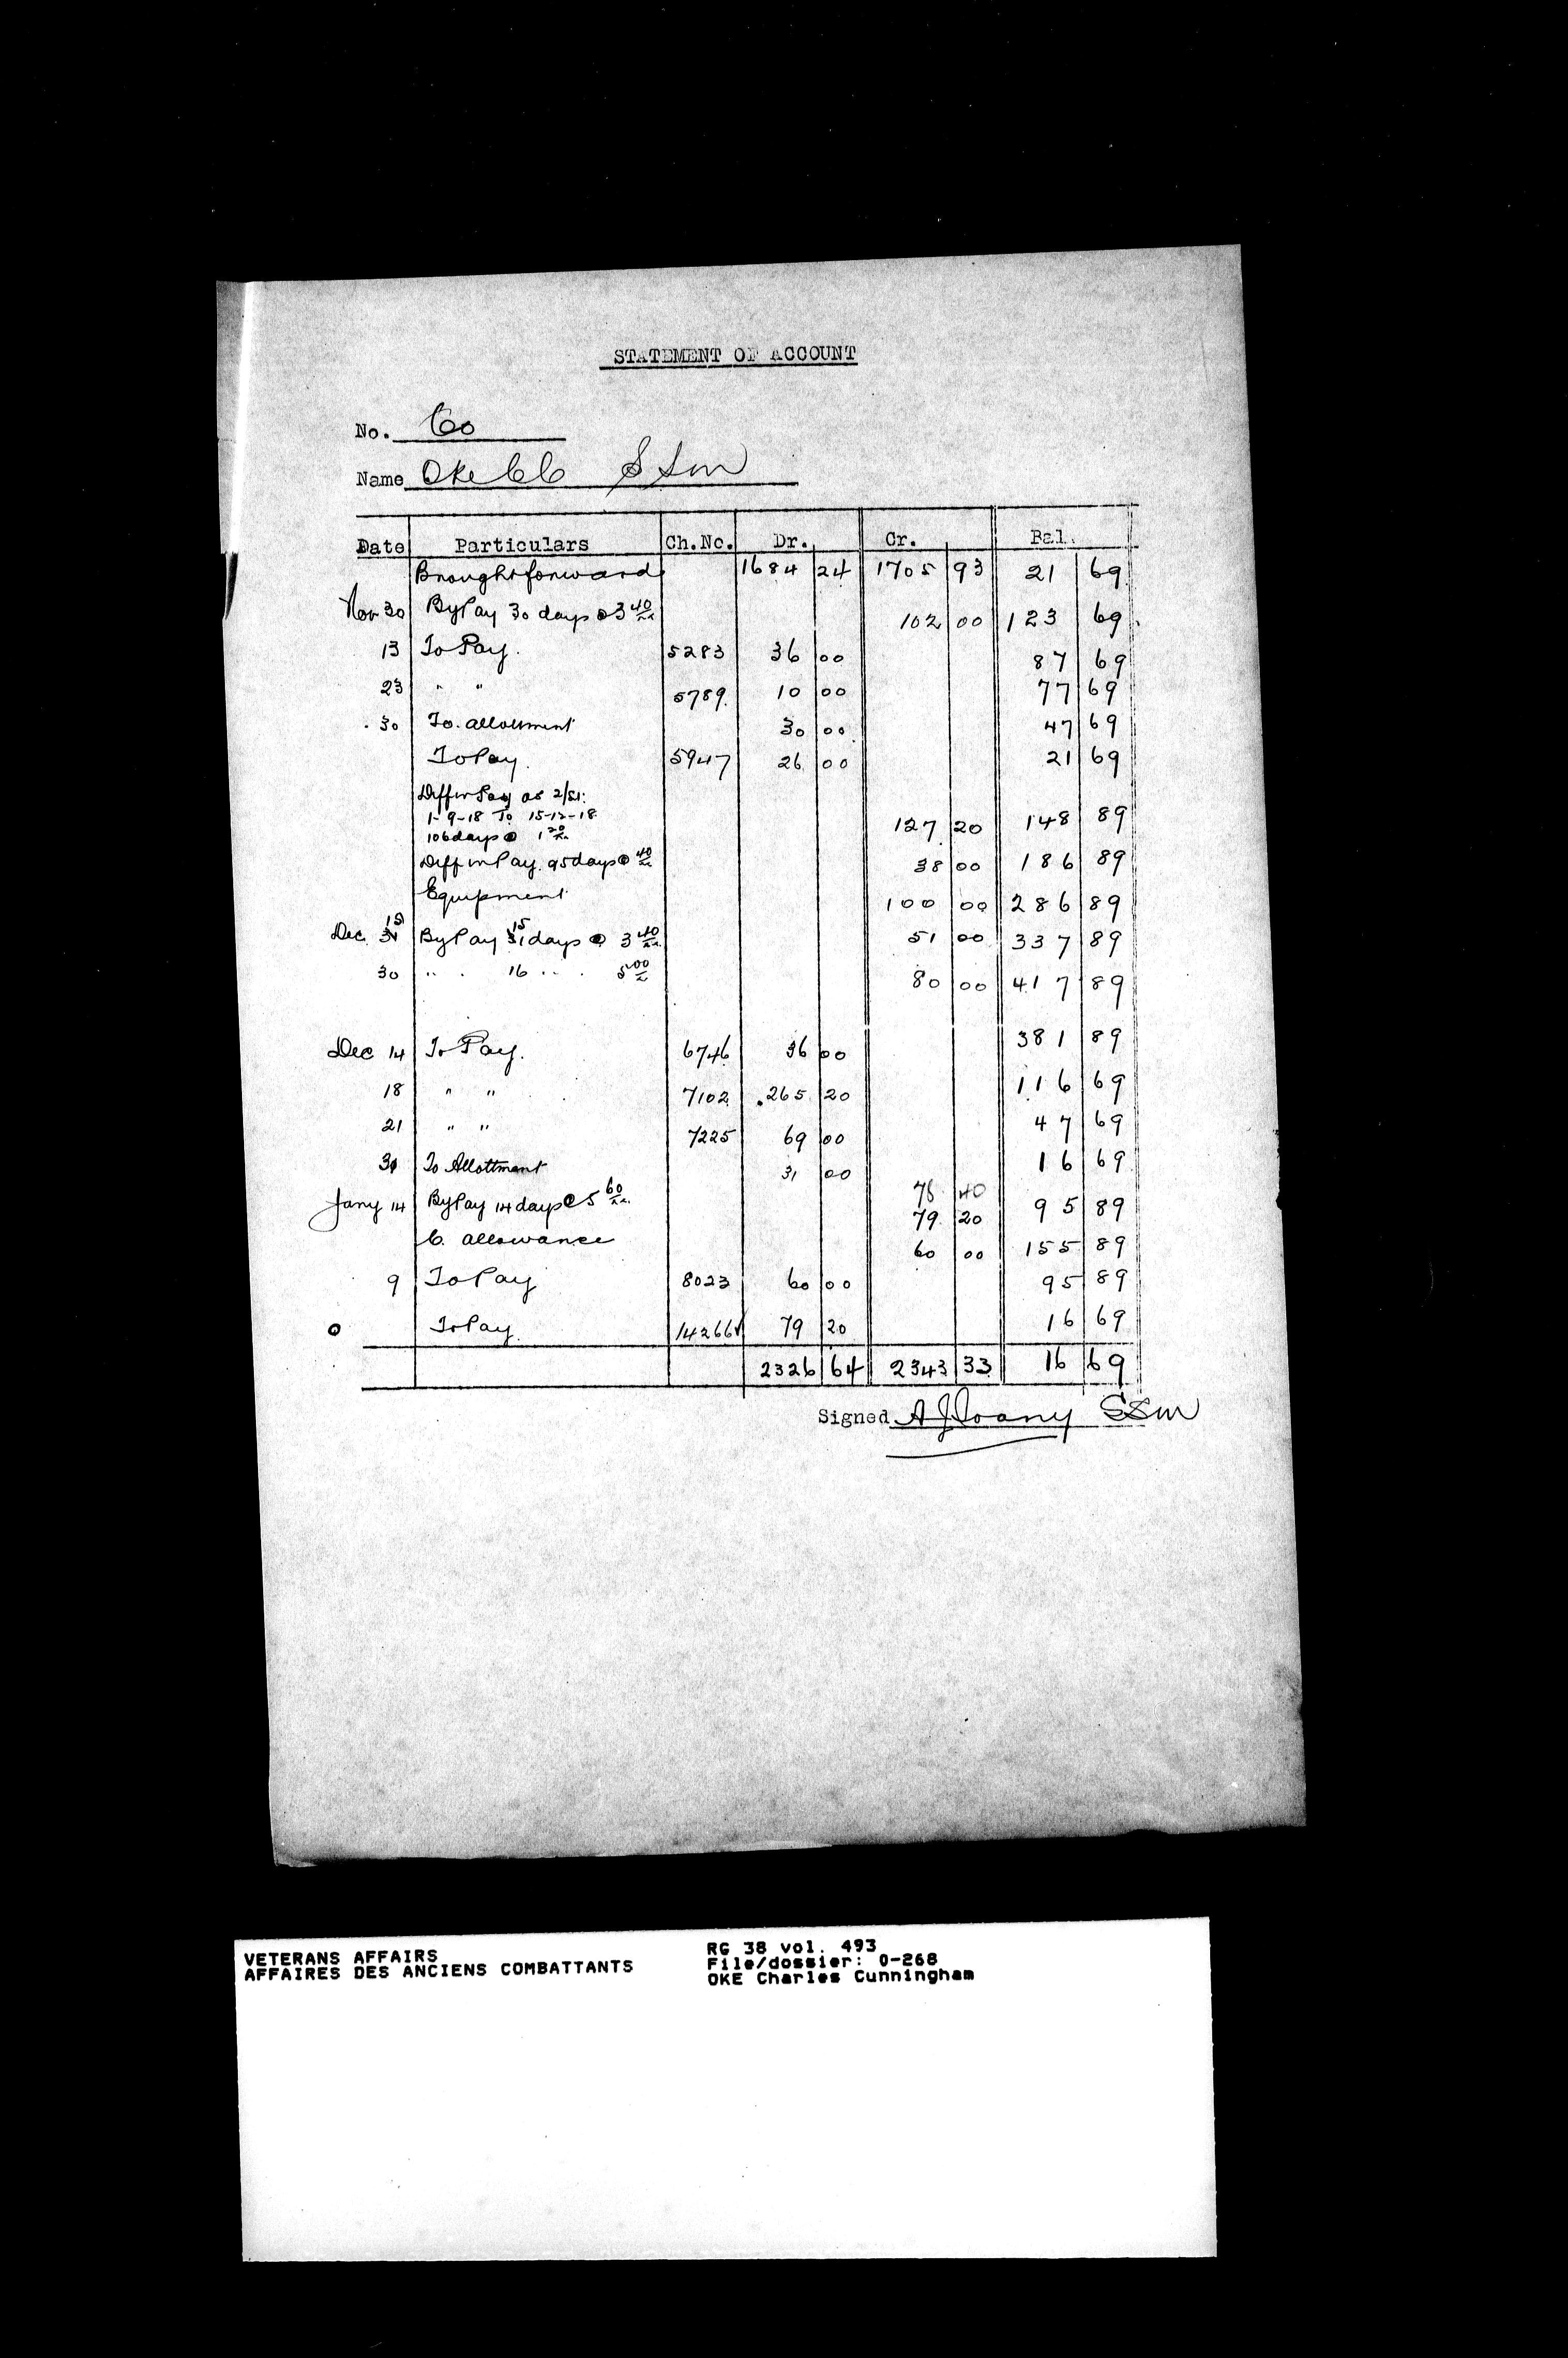 STATEMENT OF ACCOUNT
No. 60
Name Oke CC SSM
Date Particulars Ch.No. Dr. Cr. Bal.
Brought forward 1684 24 1705 93 21 69
Nov 30 By Pay 30 days @ 3 40/xx 102 00 123 69
13 To Pay. 5283 36 00 87 69
23 " " 5789. 10 00 77 69
30 To. allotment 30 00 47 69
To Pay. 5947 26 00 21 69
Diff in Pay as 2/Lt:
1-9-18 To 15-12-18
106 days @ 1 20/xx 127 20 148 89
Diff in Pay. 95 days @ 40/xx 38 00 186 89
Equipment 100 00 286 89
Dec. 15 By Pay 15 days @ 3 40/xx 51 00 337 89
30 " . 16 " . 5 00/xx 80 00 417 89
Dec 14 To Pay. 6746 36 00 381 89
18 " " 7102 265 20 116 69
21 " " 7225 69 00 47 69
31 To Allottment 31 00 16 69
78 40
Jany 14 By Pay 14 days @ 5 60/xx 79 20 95 89
C. allowance 60 00 155 89
9 To Pay 8023 60 00 95 89
To Pay. 14266 79 20 16 69
2326 64 2343 33 16 69
Signed SSM
VETERANS AFFAIRS
AFFAIRES DES ANCIENS COMBATTANTS
RG 38 vol. 493
File/dossier: O-268
OKE Charles Cunningham